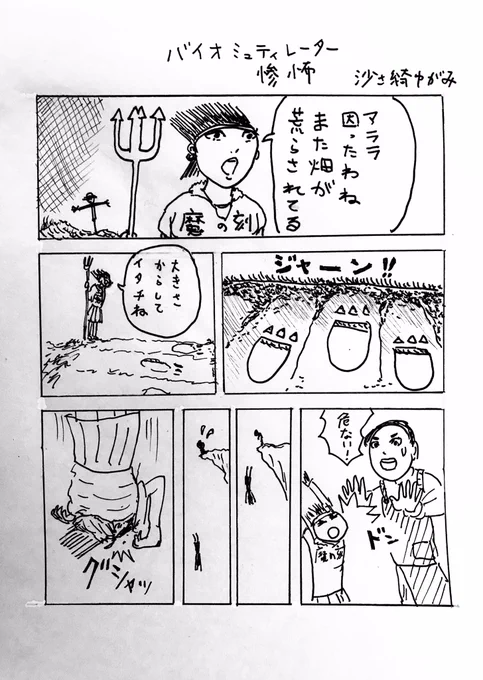 バイオミュティレーター
惨怖
沙さ綺ゆがみ
アララ
困ったわね
また畑が
荒らされてる
魔の刻
ジャーン!!
大きさ
からして
イタチね
危ない!
ドン
グシャッ